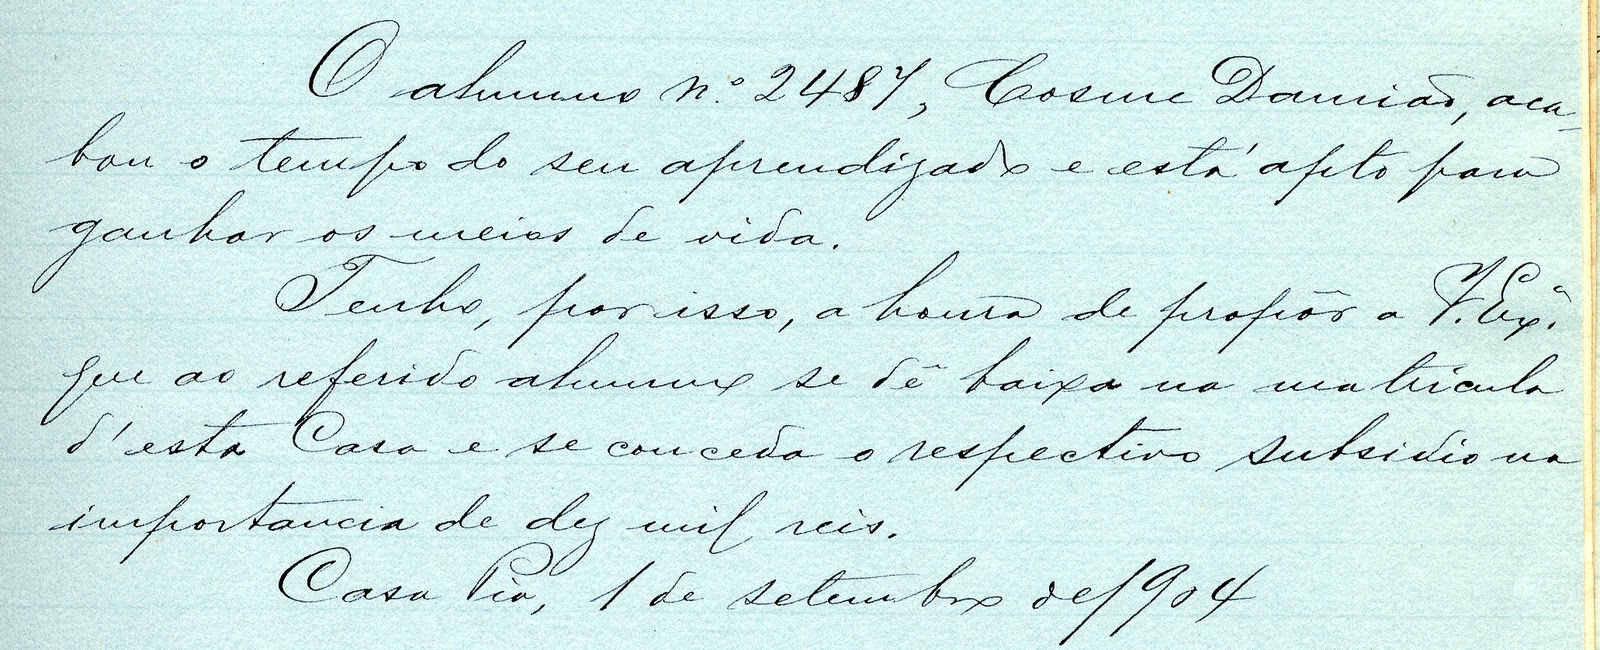 O alumno n.º 2487, Cosme Damião, aca-
bou o tempo do seu aprendizado e está apto para
ganhar os meios de vida.
Tenho, por isso, a honra de propôr a V. Ex.ª
que ao referido alumno se dê baixa na matricula
d'esta Casa e se conceda o respectivo subsidio na
importancia de dez mil reis.
Casa Pia, 1 de setembro de 1904